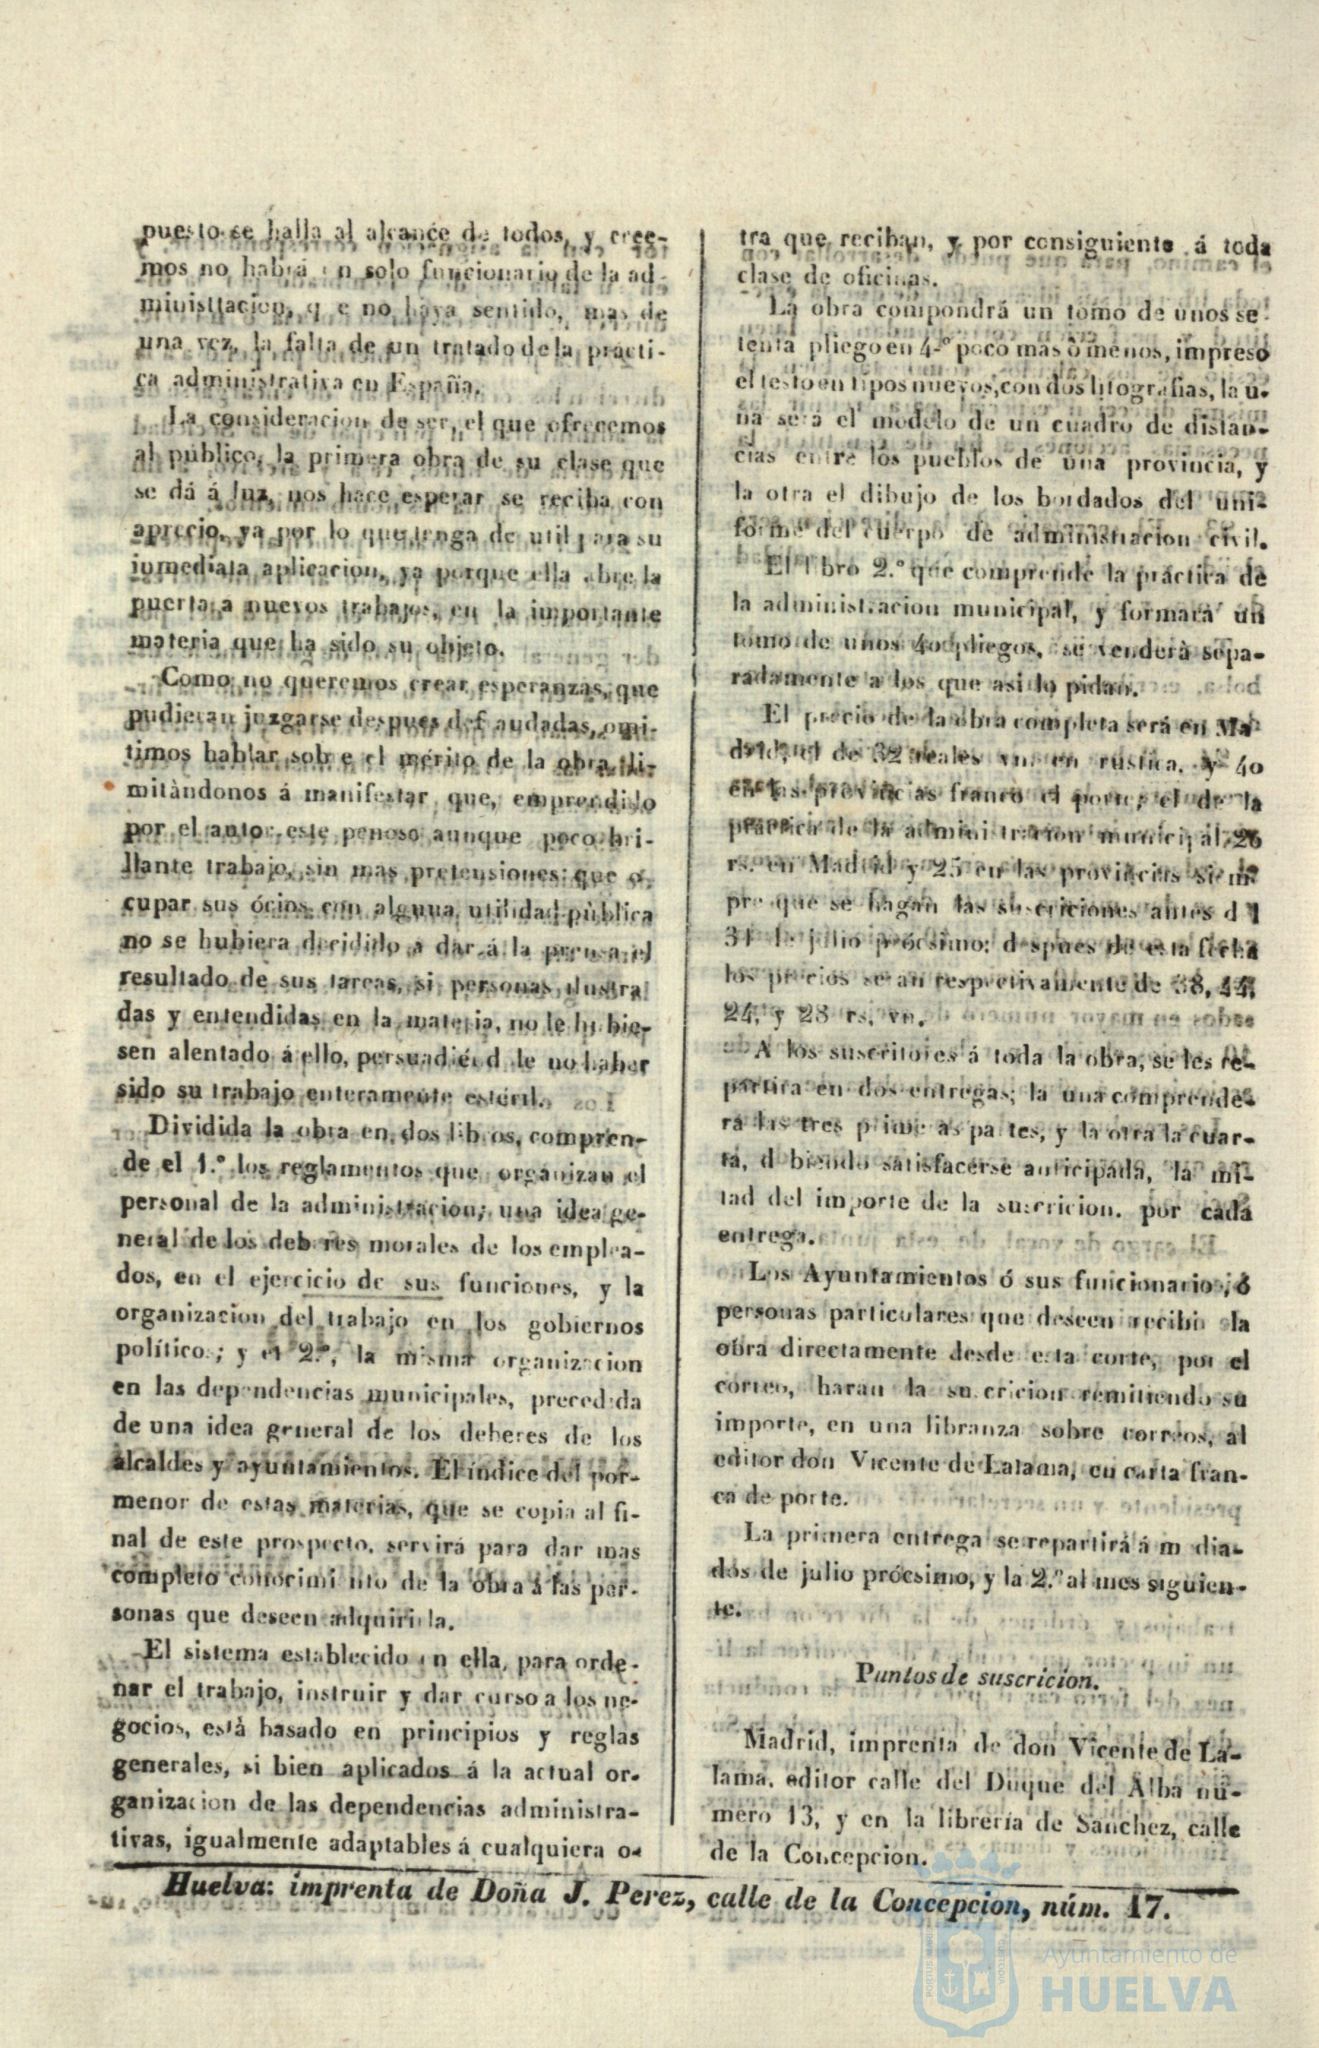 puesto se halla al alcance de todos, y cree-
mos no habrá un solo funcionario de la ad
ministtacion, q e no haya sentido, mas de
una vez, la falta de un tratado de la prácti-
ca administrativa en España.
La consideracion de ser, el que ofrecemos
al público, la primera obra de su clase que
se dá á luz, nos hace esperar se reciba con
aprecio, ya por lo que tenga de util para su
inmediata aplicacion, ya porque ella abre la
puerta a nuevos trabajos, en la importante
materia que ha sido su objeto.
Como no queremos crear esperanzas, que
pudieran juzgarse despues def audadas, omi-
timos hablar sob e el mérito de la obra, li-
mitàndonos á manifestar que, emprendido
por el autor este penoso aunque poco bri-
llante trabajo, sin mas pretensiones que o-
cupar sus ócios con alguna utilidad pùblica
no se hubiera decidido a dar á la prensa el
resultado de sus tareas, si personas ilustra
das y entendidas en la materia, no le hubie-
sen alentado á ello, persuadiéd d le no haber
sido su trabajo enteramente estéril.
Dividida la obra en dos lib os, compren-
de el 1.º los reglamentos que organizan el
personal de la administracion; una idea ge-
neral de los deberes morales de los emplea-
dos, en el ejercicio de sus funciones, y la
organizacion del trabajo en los gobiernos
político ; y el 2.º, la misma organizacion
en las dependencias municipales, precedida
de una idea general de los deberes de los
alcaldes y ayuntamientos. El índice del por-
menor de estas materias, que se copia al fi-
nal de este prospecto, servirá para dar mas
completo conocimi nto de la obra á las per-
sonas que deseen adquirirla.
El sistema establecido en ella, para orde-
nar el trabajo, instruir y dar curso a los ne-
gocios, está basado en principios y reglas
generales, si bien aplicados á la actual or-
ganizacion de las dependencias administra-
tivas, igualmente adaptables á cualquiera o-
tra que reciban, y por consiguiente á toda
clase de oficinas.
La obra compondrá un tomo de unos se-
tenta pliego en 4.º poco mas ò menos, impreso
el testo en tipos nuevos, con dos litografias, la u-
na será el modelo de un cuadro de distan-
cias entre los pueblos de una provincia, y
la otra el dibujo de los bordados del uni-
forme del cuerpo de administracion civil.
El libro 2.º que comprende la práctica de
la administracion municipal, y formará un
tomo de unos 40 pliegos, se venderà sepa-
radamente a los que asi lo pidan.
El precio de la obra completa será en Ma
drid, el de 32 reales vn. en rústica, y 40
en las provincias franco el porte; el de la
práctica de la administracion municipal 20
rs. en Madrid y 25 en las provincias siem-
pre que se hagan las suscriciones antes d l
31 de julio prócsimo: d spues de esta fecha
los precios se an respectivamente de 38, 44,
24, y 28 rs. vn.
A los suscritores á toda la obra, se les re-
partira en dos entregas; la una comprende-
rá las tres prime as pa tes, y la otra la cuar-
ta, d biendo satisfacerse anticipada, la mi-
tad del importe de la suscricion. por cada
entrega.
Los Ayuntamientos ó sus funcionarios, ó
personas particulares que deseen recibir la
obra directamente desde esta corte, por el
correo, haran la su cricion remitiendo su
importe, en una libranza sobre correos, al
editor don Vicente de Lalama, en carta fran-
ca de porte.
La primera entrega se repartirá á m dia-
dos de julio prócsimo, y la 2.ª al mes siguien-
te.
Puntos de suscricion.
Madrid, imprenta de don Vicente de La-
lama, editor calle del Duque del Alba nú-
mero 13, y en la librería de Sanchez, calle
de la Concepcion.
Huelva: imprenta de Doña J. Perez, calle de la Concepcion, núm. 17.
Ayuntamiento de
HUELVA